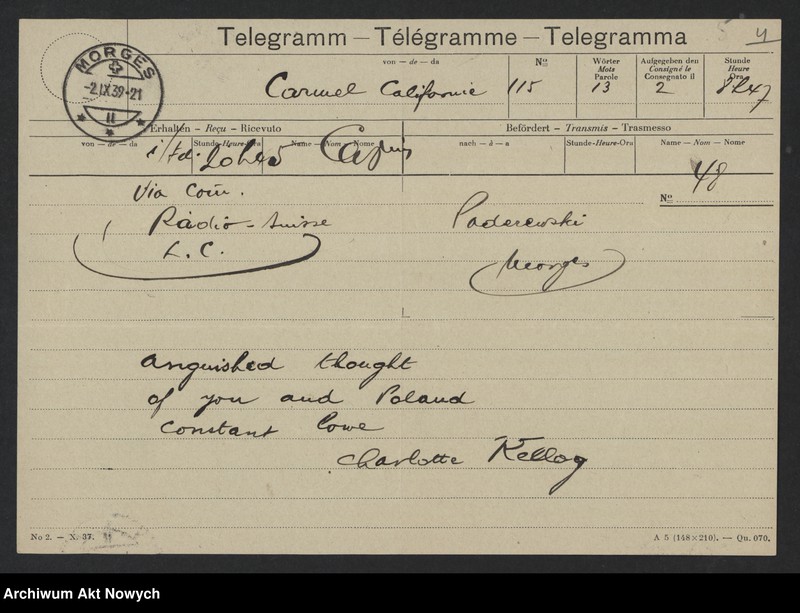 Telegramm – Télégramme – Telegramma
MORGES
-2.IX.39-21
von – de – da
Carmel Californie
No
115
Wörter
Mots
Parole
13
Aufgegeben den
Consigné le
Consegnato il
2
Stunde
Heure
Ora
8h47
Erhalten – Reçu – Ricevuto
Befördert – Transmis – Trasmesso
von – de – da
Stunde-Heure-Ora
Name – Nom – Nome
nach – à – a
Stunde-Heure-Ora
Name – Nom – Nome
No
48
Via Com.
Radio-Suisse
L.C.
Paderewski
Morges
anguished thought
of you and Poland
constant lowe
Charlotte Kellog
No 2. – X. 37.
A 5 (148×210). — Qu. 070.
Archiwum Akt Nowych